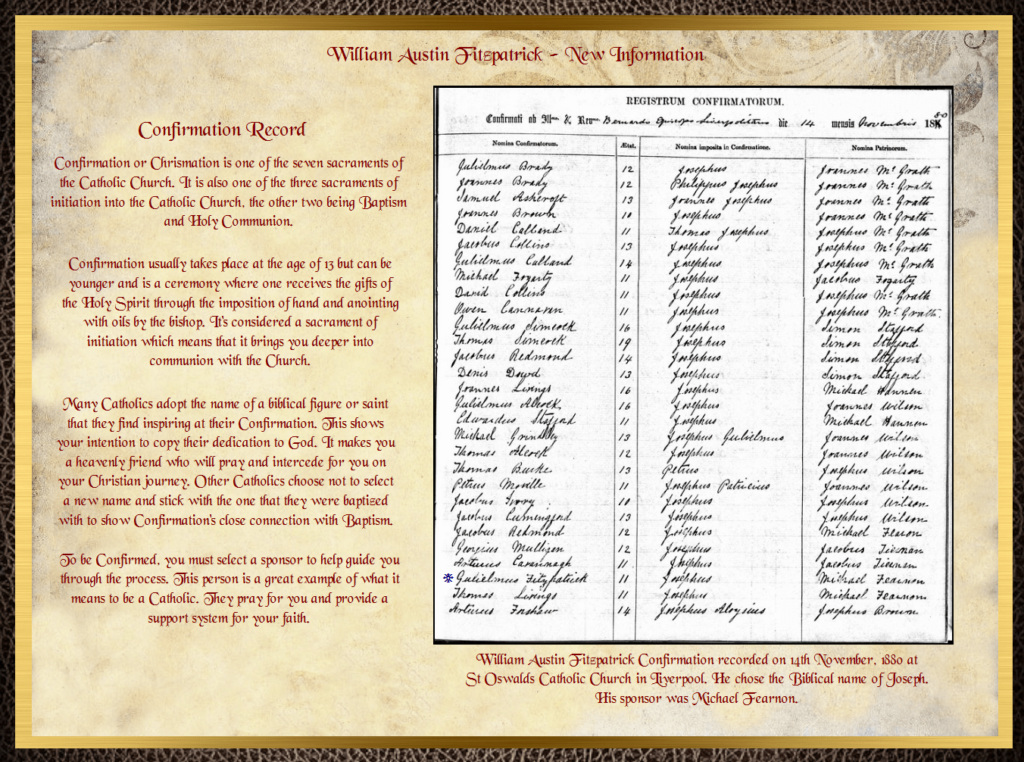 William Austin Fitzpatrick - New Information
Confirmation Record
Confirmation or Chrismation is one of the seven sacraments of
the Catholic Church. It is also one of the three sacraments of
initiation into the Catholic Church, the other two being Baptism
and Holy Communion.
Confirmation usually takes place at the age of 13 but can be
younger and is a ceremony where one receives the gifts of
the Holy Spirit through the imposition of hand and anointing
with oils by the bishop. It's considered a sacrament of
initiation which means that it brings you deeper into
communion with the Church.
Many Catholics adopt the name of a biblical figure or saint
that they find inspiring at their Confirmation. This shows
your intention to copy their dedication to God. It makes you
a heavenly friend who will pray and intercede for you on
your Christian journey. Other Catholics choose not to select
a new name and stick with the one that they were baptized
with to show Confirmation's close connection with Baptism.
To be Confirmed, you must select a sponsor to help guide you
through the process. This person is a great example of what it
means to be a Catholic. They pray for you and provide a
support system for your faith.
REGISTRUM CONFIRMATORUM.
Confirmati ab Illmo & Revmo Bernardo die 14 mensis Novembris 1880
Nomina Confirmatorum. Ætat. Nomina imposita in Confirmatione. Nomina Patrinorum.
Gulielmus Brady 12 Josephus Joannes Mc Grath
Joannes Brady 12 Philippus Josephus Joannes Mc Grath
Samuel Ashcroft 13 Joannes Josephus Joannes Mc Grath
Joannes Brown 10 Josephus Joannes Mc Grath
Daniel Calland 11 Thomas Josephus Joannes Mc Grath
Jacobus Collins 13 Josephus Josephus Mc Grath
Gulielmus Calland 14 Josephus Josephus Mc Grath
Michael Fogarty 11 Josephus Jacobus Fogarty
David Collins 11 Josephus Josephus Mc Grath
Owen Cannavan 11 Josephus Josephus Mc Grath
Gulielmus Simcock 16 Josephus Simon Stafford
Thomas Simcock 19 Josephus Simon Stafford
Jacobus Redmond 14 Josephus Simon Stafford
Denis Dowd 13 Josephus Simon Stafford
Joannes Livings 16 Josephus Michael Hannen
Gulielmus Alcock 16 Josephus Joannes Wilson
Edwardus Stafford 11 Josephus Michael Hannen
Michael Grindley 13 Josephus Gulielmus Joannes Wilson
Thomas Alcock 12 Josephus Joannes Wilson
Thomas Burke 13 Petrus Josephus Wilson
Petrus Moville 11 Josephus Patricius Joannes Wilson
Jacobus 10 Josephus Josephus Wilson
Jacobus Cummingford 13 Josephus Josephus Wilson
Jacobus Redmond 12 Josephus Michael Fearon
Georgius Mulligan 12 Josephus Jacobus Tiernan
Arturus Cavennagh 11 Josephus Jacobus Tiernan
* Gulielmus Fitzpatrick 11 Josephus Michael Fearnon
Thomas Livings 11 Josephus Michael Fearnon
Arturus Forshaw 14 Josephus Aloysius Josephus Brown
William Austin Fitzpatrick Confirmation recorded on 14th November, 1880 at
St Oswalds Catholic Church in Liverpool. He chose the Biblical name of Joseph.
His sponsor was Michael Fearnon.